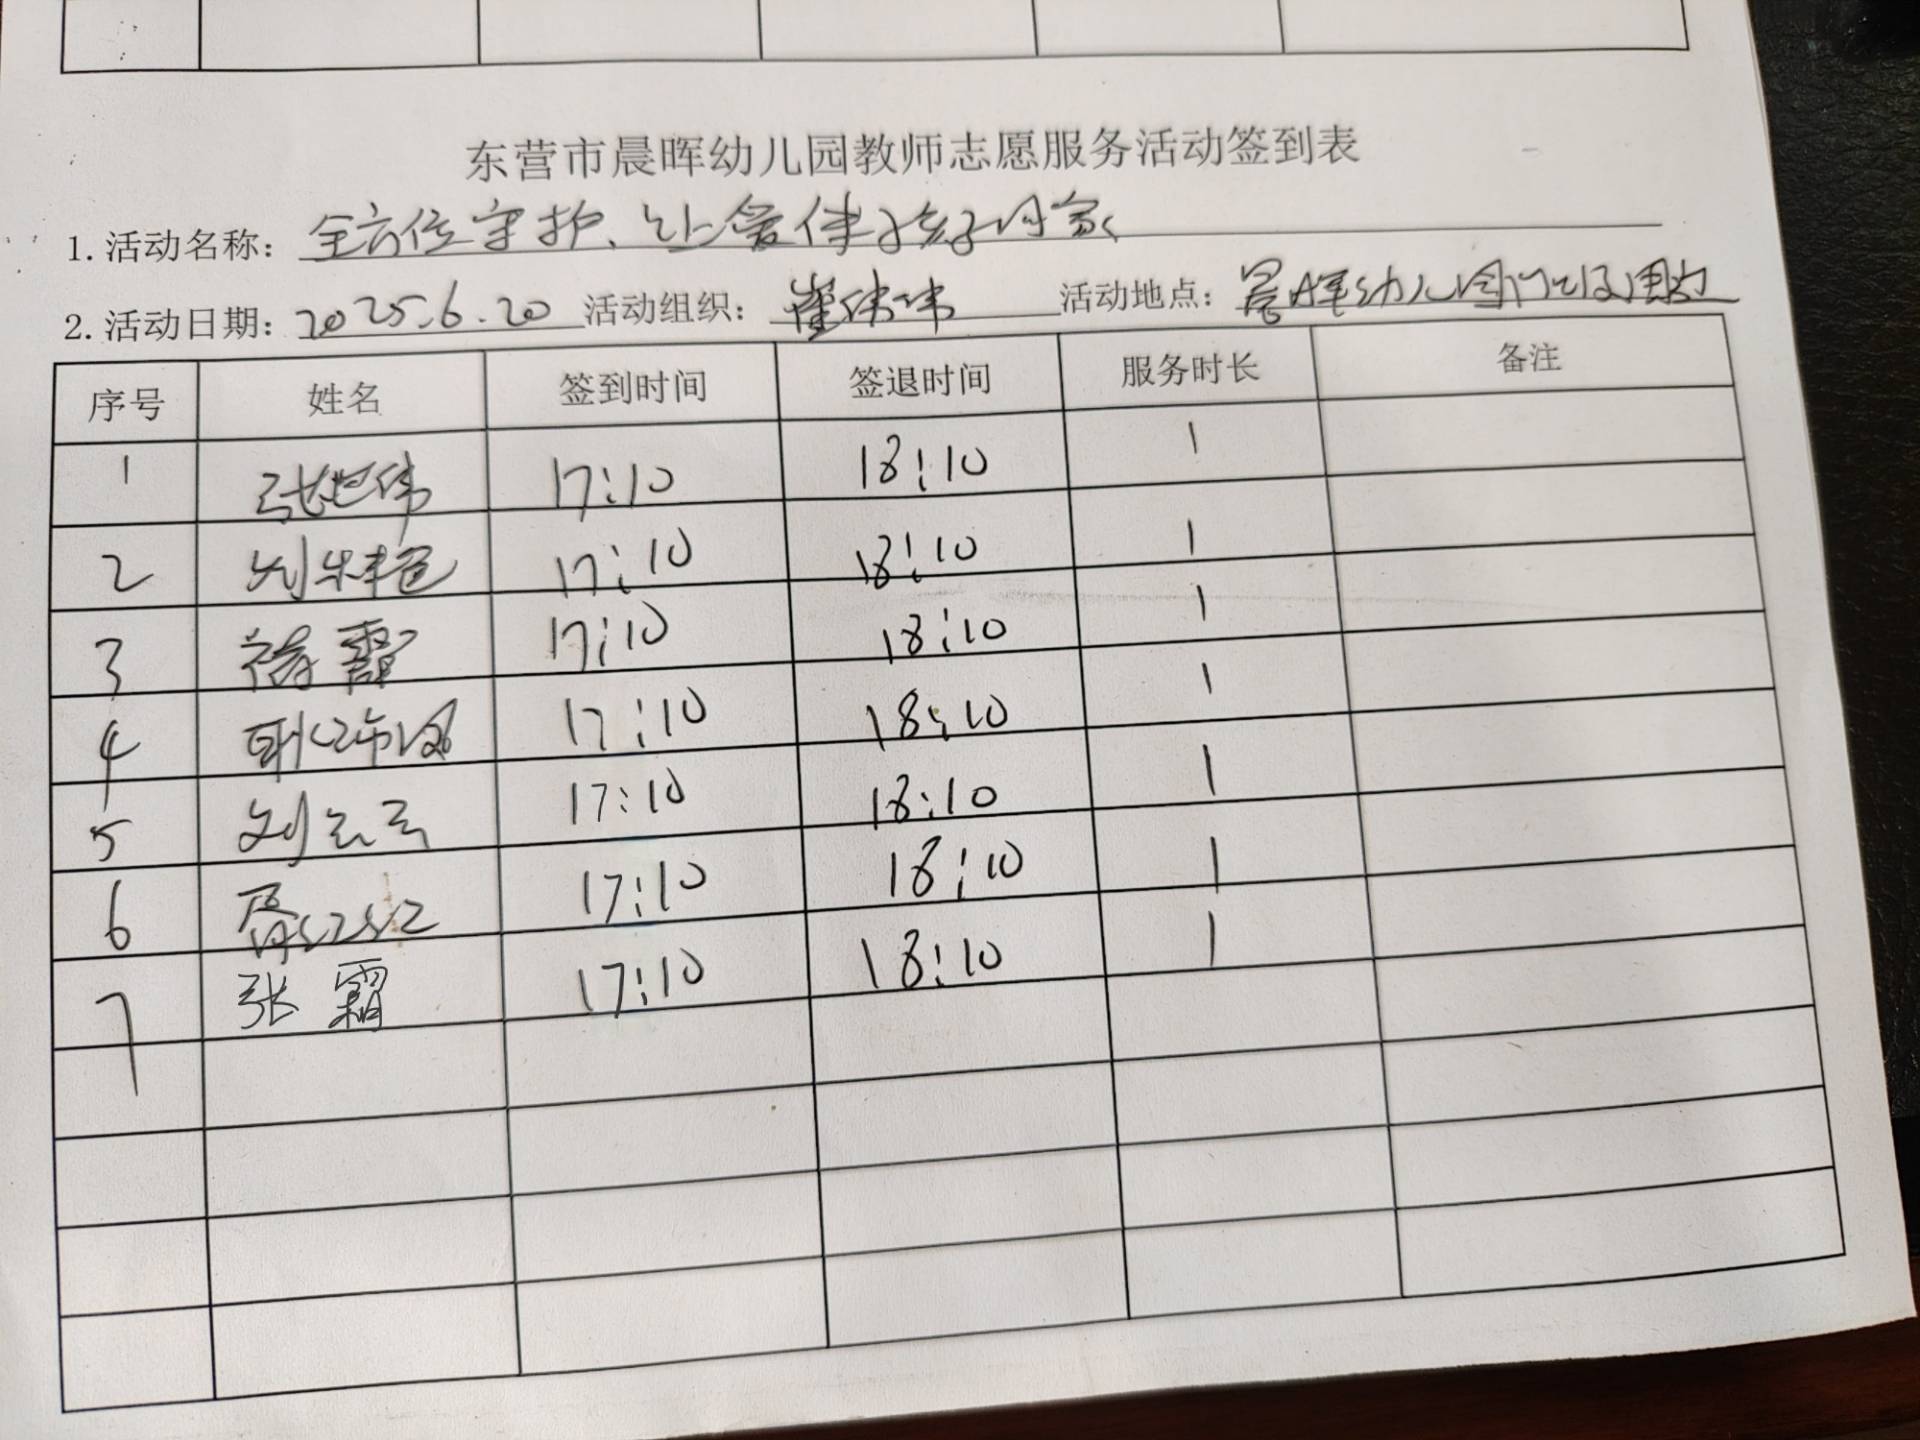 东营市晨晖幼儿园教师志愿服务活动签到表
1. 活动名称: 全方位守护、让爱伴孩子回家
2. 活动日期: 2025.6.20 活动组织: 崔伟伟 活动地点: 晨晖幼儿园门口及周边
序号 姓名 签到时间 签退时间 服务时长 备注
1 张世伟 17:10 18:10 1
2 刘 17:10 18:10 1
3 霞 17:10 18:10 1
4 耿 17:10 18:10 1
5 刘云云 17:10 18:10 1
6 胥红红 17:10 18:10 1
7 张霜 17:10 18:10 1